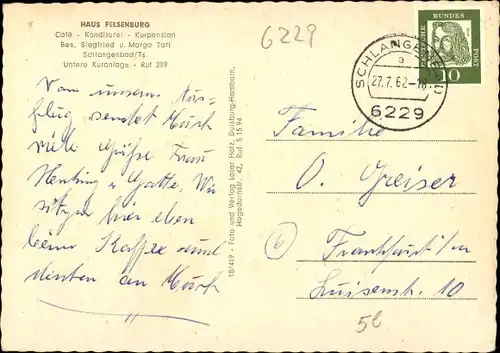 HAUS FELSENBURG
Café - Konditorei - Kurpension
Bes. Siegfried u. Marga Taft
Schlangenbad/Ts.
Untere Kuranlage - Ruf 289
Vom unsern Aus-
flug sendet Euch
viele Grüße Frau
u Gatte, Wir
sitzen hier eben
beim Kaffee und
denken an Euch
18/419 - Foto und Verlag Lotar Holz, Duisburg-Hamborn,
Hagedornstr. 42, Ruf 5 15 94
6229
SCHLANGENBAD
a
27.7.62-18
6229
DEUTSCHE BUNDESPOST
10
Familie
O. Greiser
6 Frankfurt/M
Luisenstr. 10